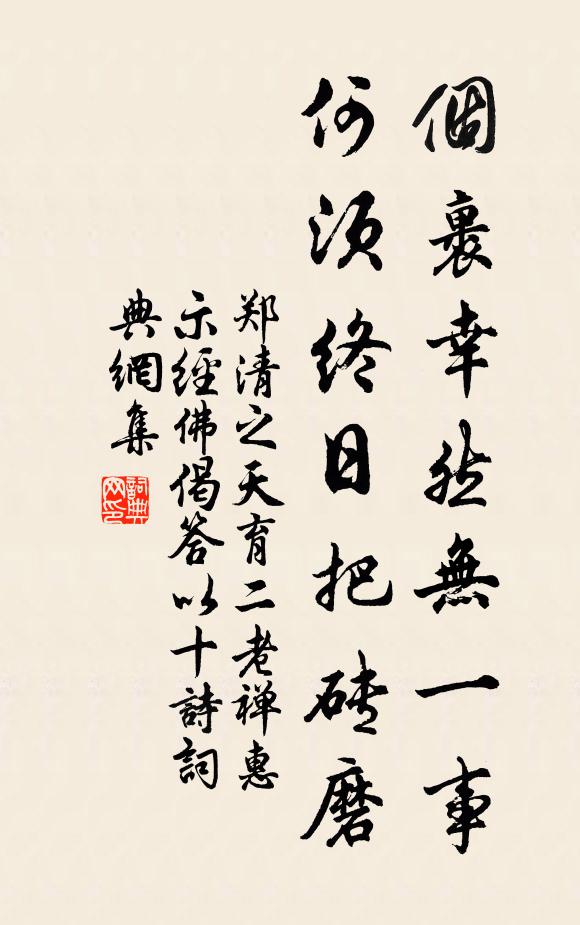 個裏幸然無一事
何須終日把磚磨
郑清之天育二老禅惠
示經佛偈答以十詩詞
典網集
詞典
网印